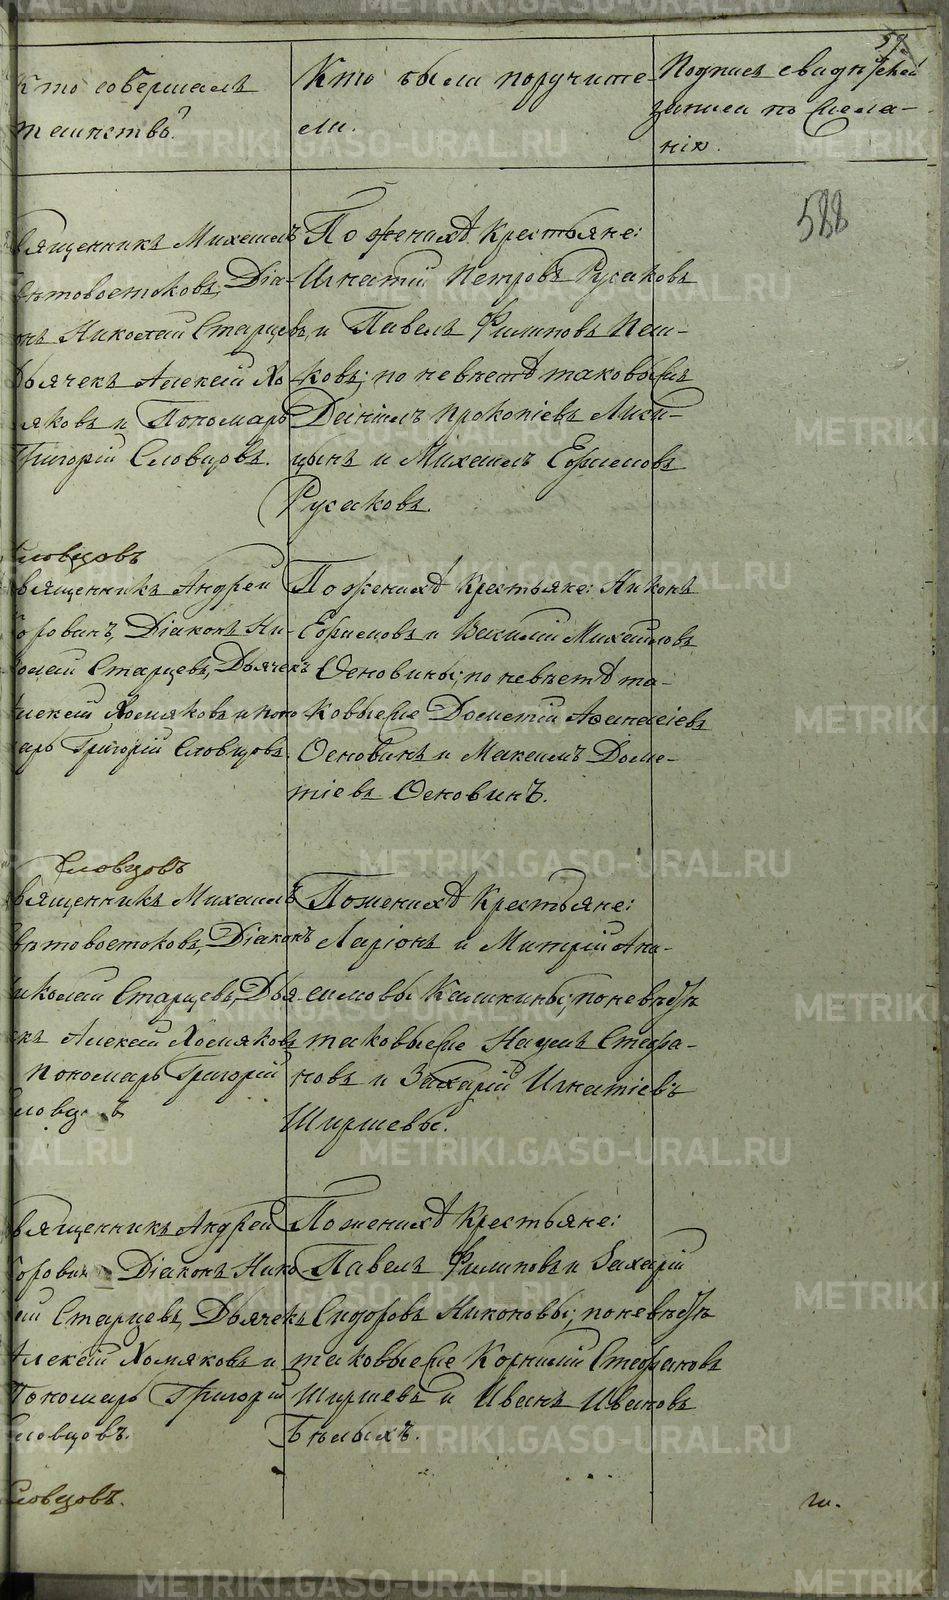 59.
Кто совершалъ
таинство?
Кто были поручите-
ли.
Подпись свидѣтелей
записи по жела-
нію.
588
Священникъ Михаилъ
Свѣтовостоковъ, Діа-
конъ Николай Старцевъ,
Дьячекъ Алексѣй Хо-
мяковъ и Пономарь
Григорій Словцовъ.
По женихѣ Крестьяне:
Игнатій Петровъ Русаковъ
и Павелъ Филиповъ Пеш-
ковъ; по невѣстѣ таковые же
Даніилъ Прокопіевъ Лиси-
цынъ и Михаилъ Ефремовъ
Русаковъ.
Словцовъ
Священникъ Андрей
Діаконъ Ни-
колай Старцевъ, Дьячекъ
Алексѣй Хомяковъ и Поно-
марь Григорій Словцовъ.
По женихѣ Крестьяне: Никонъ
Ефремовъ и Василій Михайловъ
Основины; по невѣстѣ та-
ковые же Дометій Афанасіевъ
Основинъ и Максимъ Доме-
тіевъ Основинъ.
Словцовъ
Священникъ Михаилъ
Свѣтовостоковъ, Діаконъ
Николай Старцевъ, Дья-
чекъ Алексѣй Хомяковъ
Пономарь Григорій
Словцовъ
По женихѣ Крестьяне:
Ларіонъ и Митрій Ани-
симовы Калинины; по невѣстѣ
таковые же Наумъ Стефа-
новъ и Захарій Игнатіевъ
Ширшевы.
Священникъ Андрей
Діаконъ Нико-
лай Старцевъ, Дьячекъ
Алексѣй Хомяковъ и
Пономарь Григорій
Словцовъ.
По женихѣ Крестьяне:
Павелъ Филиповъ и Захарій
Сидоровъ Никоновы; по невѣстѣ
таковые же Корнилій Стефановъ
Ширшевъ и Иванъ Ивановъ
Бѣлыхъ.
Словцовъ.
METRIKI.GASO-URAL.RU